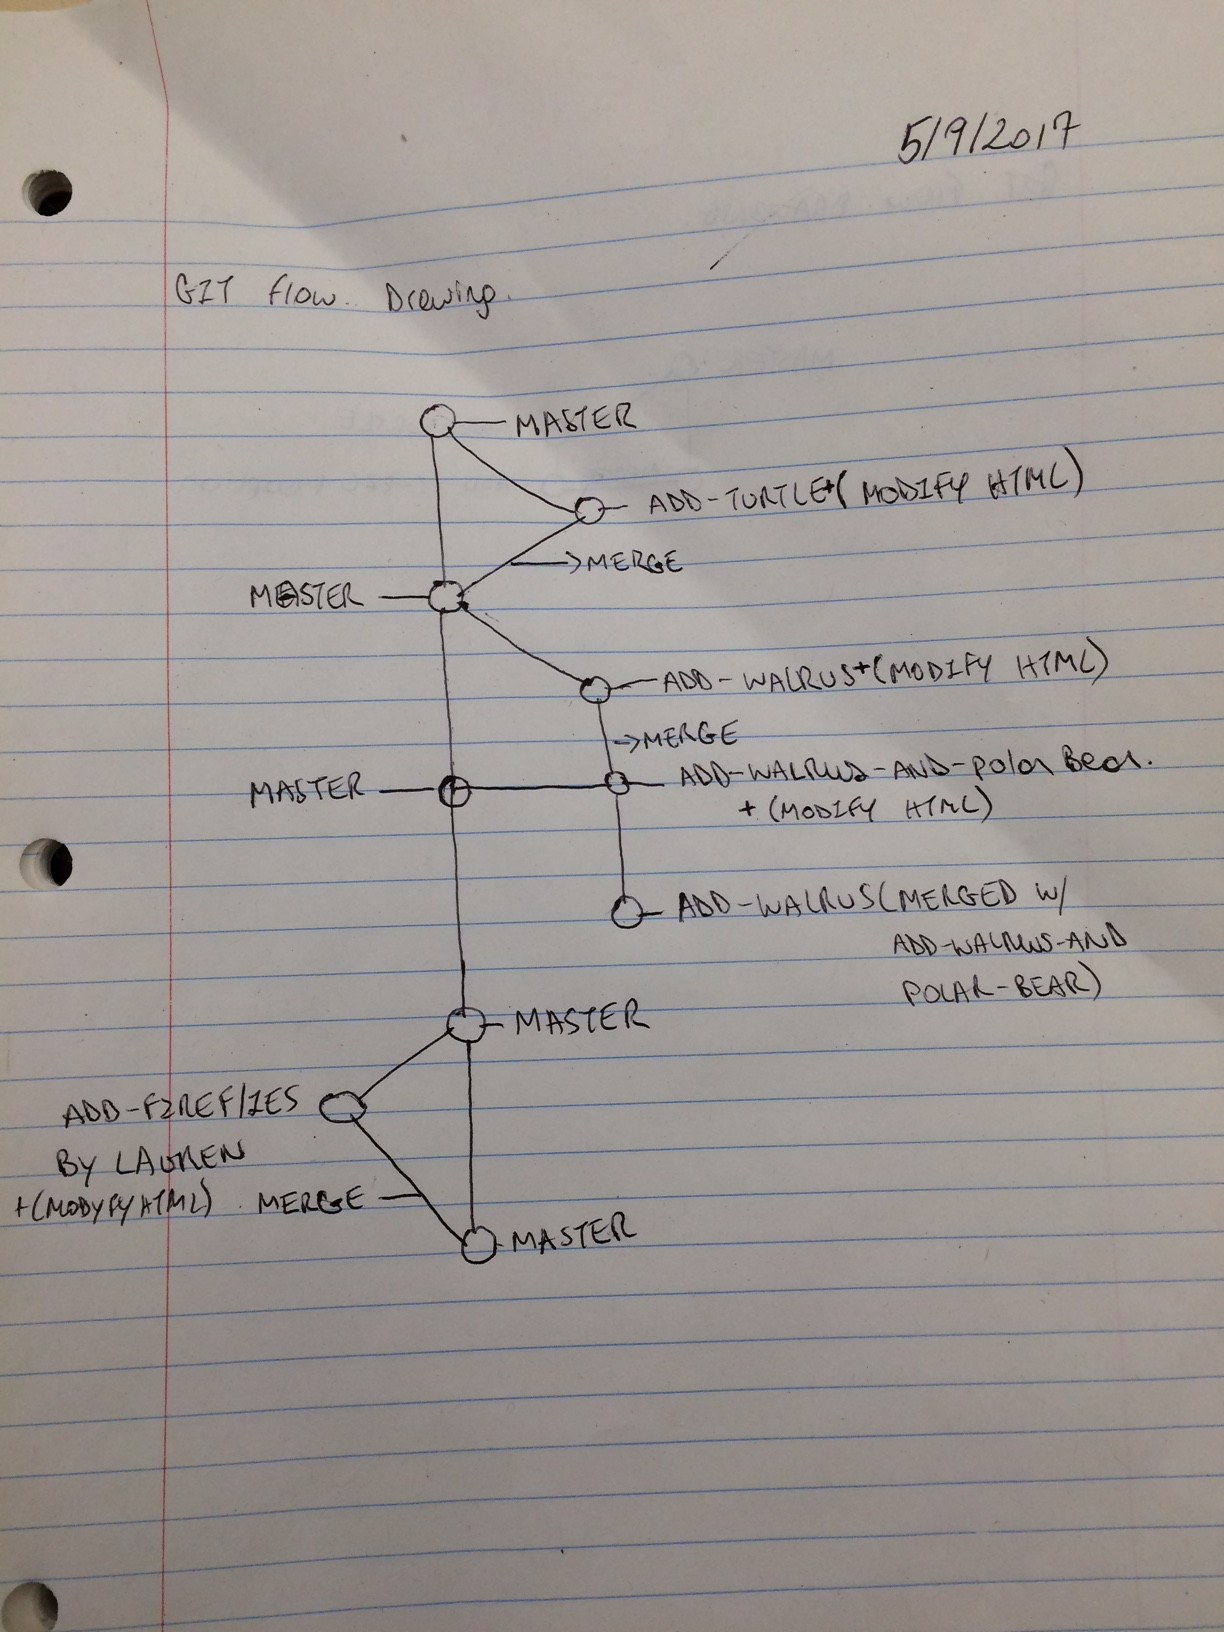 5/9/2017
GIT Flow. Drawing.
MASTER
ADD-TURTLE+(MODIFY HTML)
MERGE
MASTER
ADD-WALRUS+(MODIFY HTML)
MERGE
ADD-WALRUS-AND-Polar Bear.
MASTER
+ (MODIFY HTML)
ADD-WALRUS(MERGED W/
ADD-WALRUS-AND
POLAR-BEAR)
MASTER
ADD-FIREFlIES
BY LAUREN
+(MODYFY HTML)
MERGE
MASTER